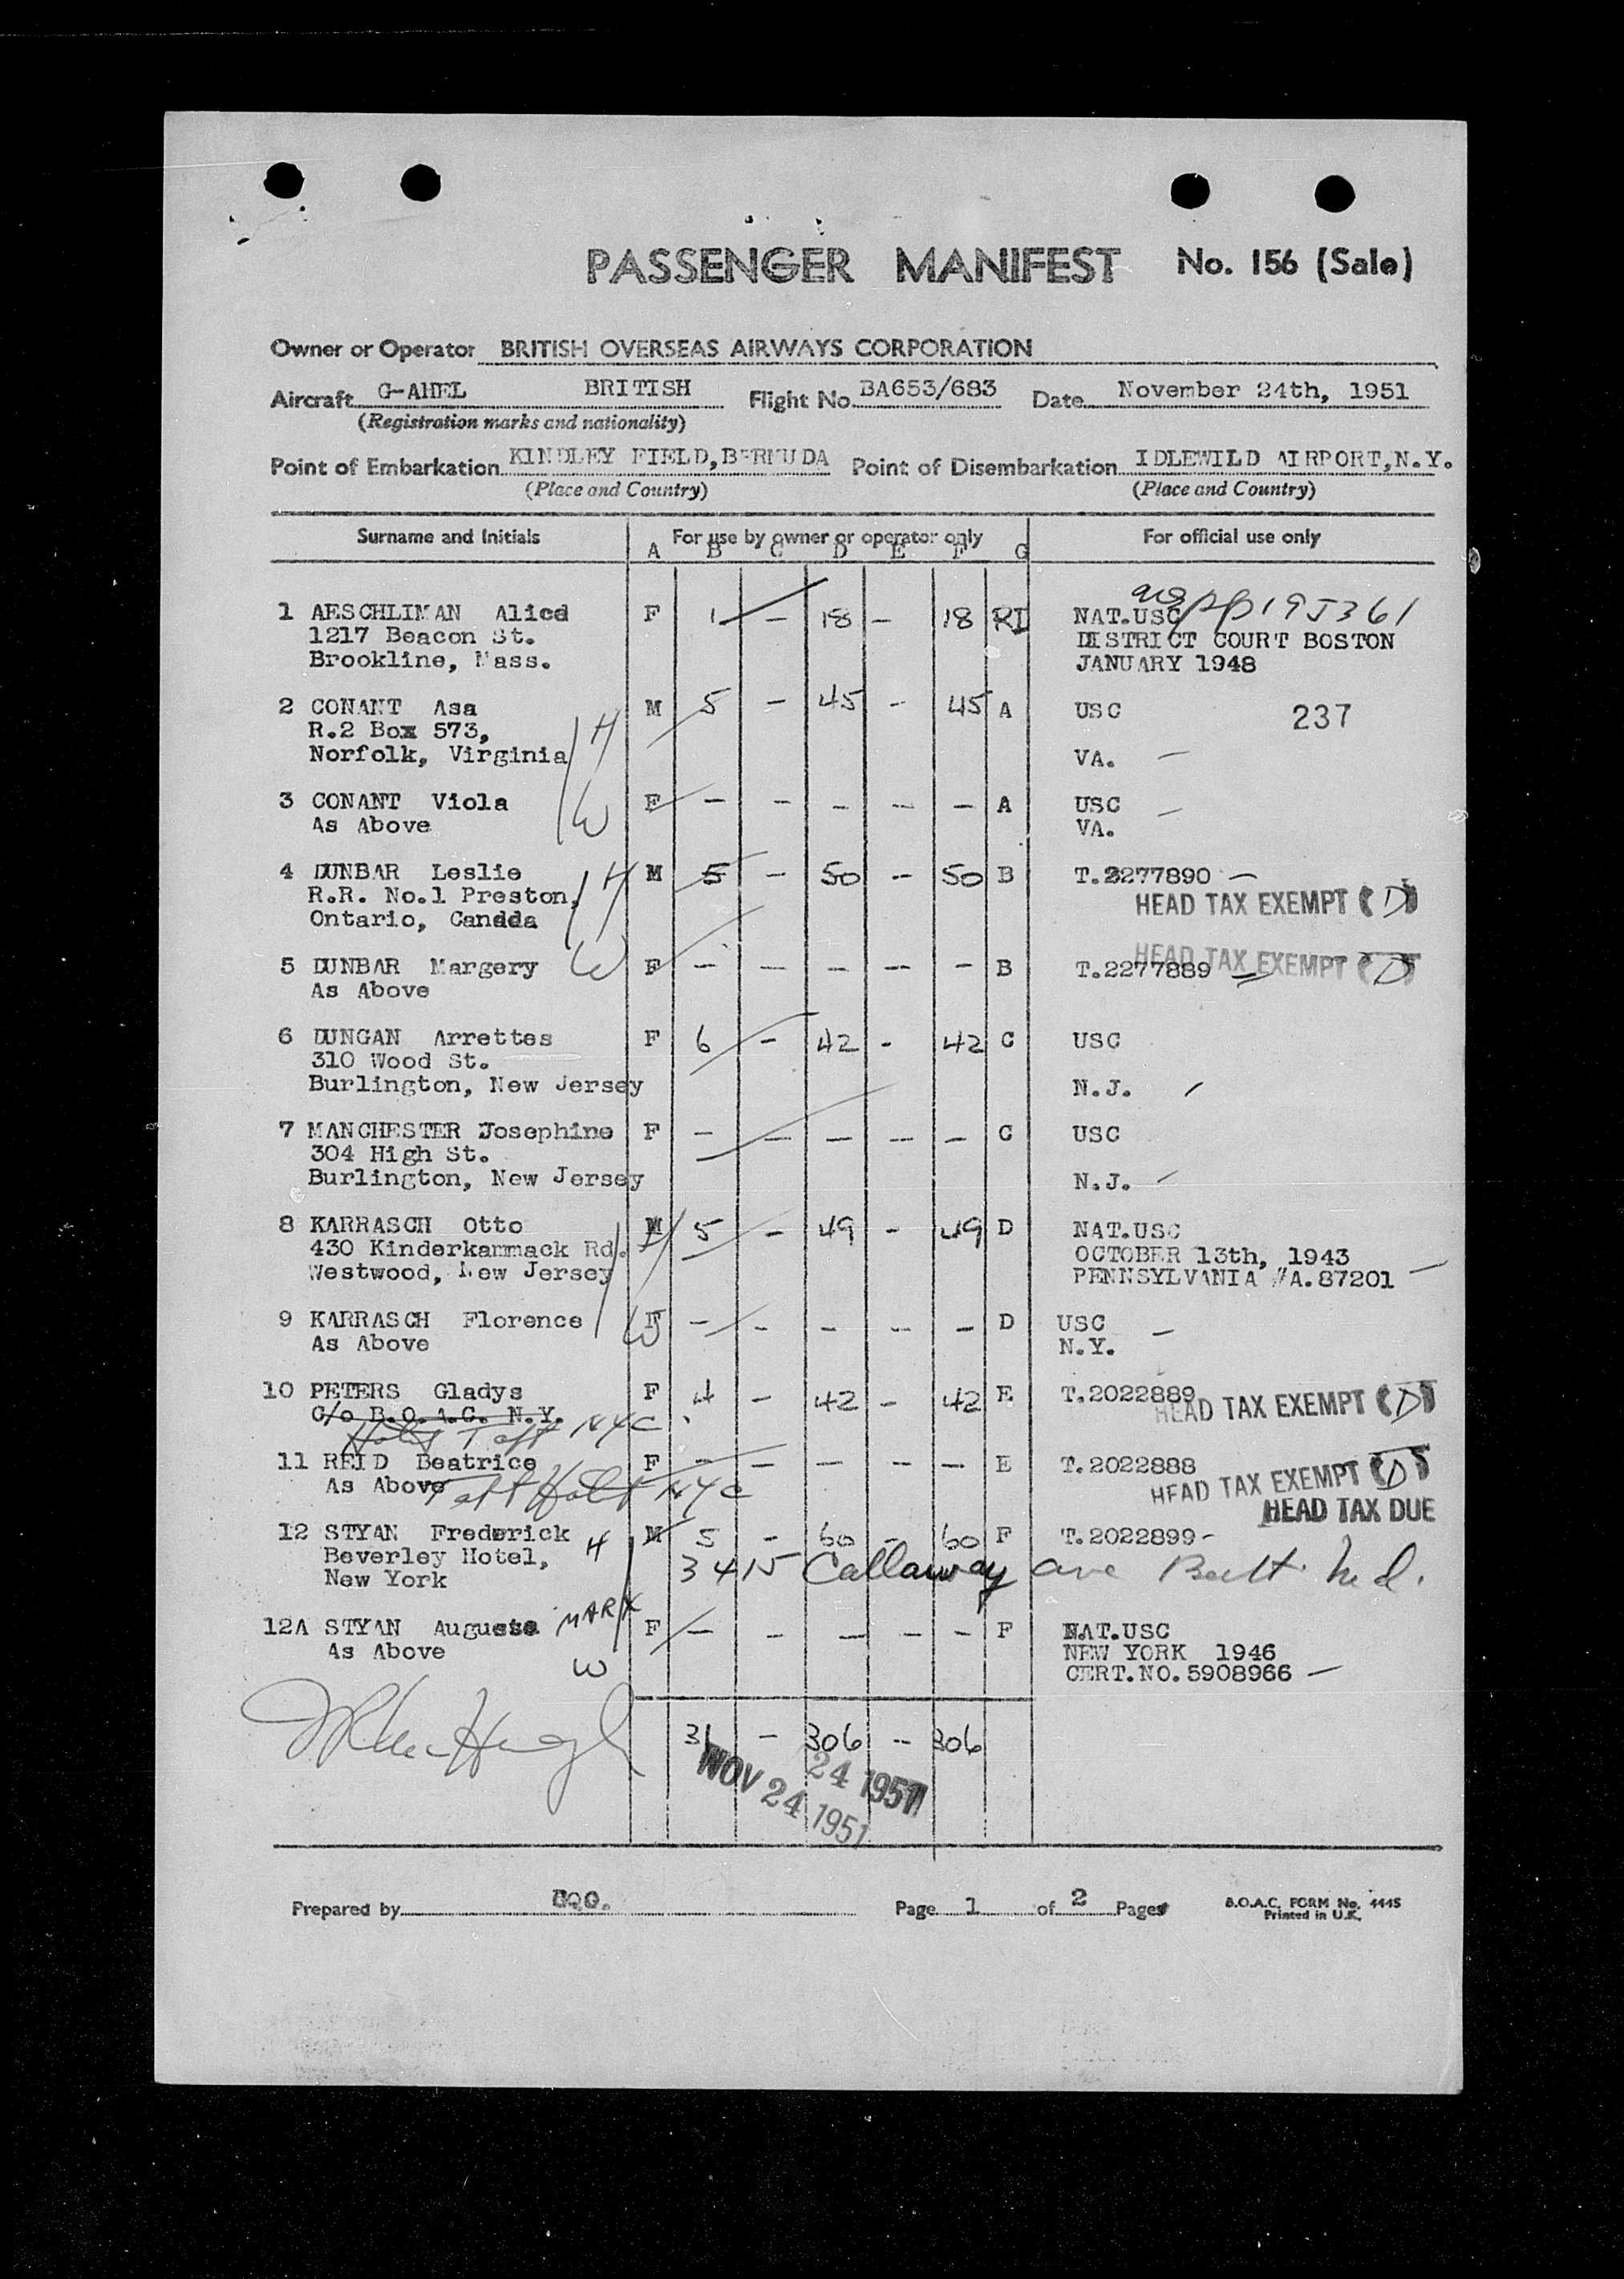 PASSENGER MANIFEST No. 156 (Sale)
Owner or Operator BRITISH OVERSEAS AIRWAYS CORPORATION
Aircraft G-AHEL BRITISH Flight No. BA653/683 Date November 24th, 1951
(Registration marks and nationality)
Point of Embarkation KINDLEY FIELD,BERMUDA Point of Disembarkation IDLEWILD AIRPORT,N.Y.
(Place and Country) (Place and Country)
Surname and Initials For use by owner or operator only For official use only
A B C D E F G
1 AESCHLIMAN Alice F 1 – 18 – 18 RI NAT.USC pp195361
1217 Beacon St. DISTRICT COURT BOSTON
Brookline, Mass. JANUARY 1948
2 CONANT Asa M 5 – 45 – 45 A USC 237
R.2 Box 573, H
Norfolk, Virginia VA. –
3 CONANT Viola F – – – – – A USC –
As Above W VA.
4 DUNBAR Leslie H M 5 – 50 – 50 B T.2277890 –
R.R. No.1 Preston, HEAD TAX EXEMPT (D)
Ontario, Canada
5 DUNBAR Margery W F – – – – – B T.2277889 HEAD TAX EXEMPT (D)
As Above
6 DUNGAN Arrettes F 6 – 42 – 42 C USC
310 Wood St.
Burlington, New Jersey N.J.
7 MANCHESTER Josephine F – – – – – C USC
304 High St.
Burlington, New Jersey N.J. –
8 KARRASCH Otto M 5 – 49 – 49 D NAT.USC
430 Kinderkammack Rd. H OCTOBER 13th, 1943
Westwood, New Jersey PENNSYLVANIA #A.87201 –
9 KARRASCH Florence W F – – – – – D USC –
As Above N.Y.
10 PETERS Gladys F 4 – 42 – 42 E T.2022889 HEAD TAX EXEMPT (D)
C/o B.O.A.C. N.Y.
Hotel Taft NYC
11 REID Beatrice F – – – – – E T.2022888
As Above Taft Hotel NYC HEAD TAX EXEMPT (D)
HEAD TAX DUE
12 STYAN Frederick H M 5 – 60 – 60 F T.2022899-
Beverley Hotel, 3415 Callaway ave Balt. Md.
New York
12A STYAN Auguste MARX F – – – – – F NAT.USC
As Above W NEW YORK 1946
CERT.NO.5908966 –
31 – 306 – 306
24 1951
NOV 24 1951
Prepared by Page 1 of 2 Pages B.O.A.C. FORM No. 4445
Printed in U.K.